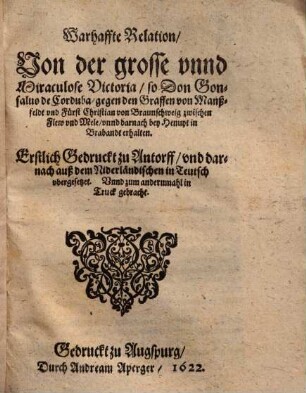 Warhaffte Relation/
Von der grosse vnnd
Miraculose Victoria/ so Don Gon-
saluo de Corduba/ gegen den Graffen von Manß-
feldt vnd Fürst Christian von Braunschweig zwischen
Flew vnd Mele/ vnnd darnach bey Henupt in
Brabandt erhalten.
Erstlich Gedruckt zu Antorff/ vnd dar-
nach auß dem Niderländischen in Teutsch
vbergesetzet. Vnnd zum andernmahl in
Truck gebracht.
Gedruckt zu Augspurg/
Durch Andream Aperger/ 1622.